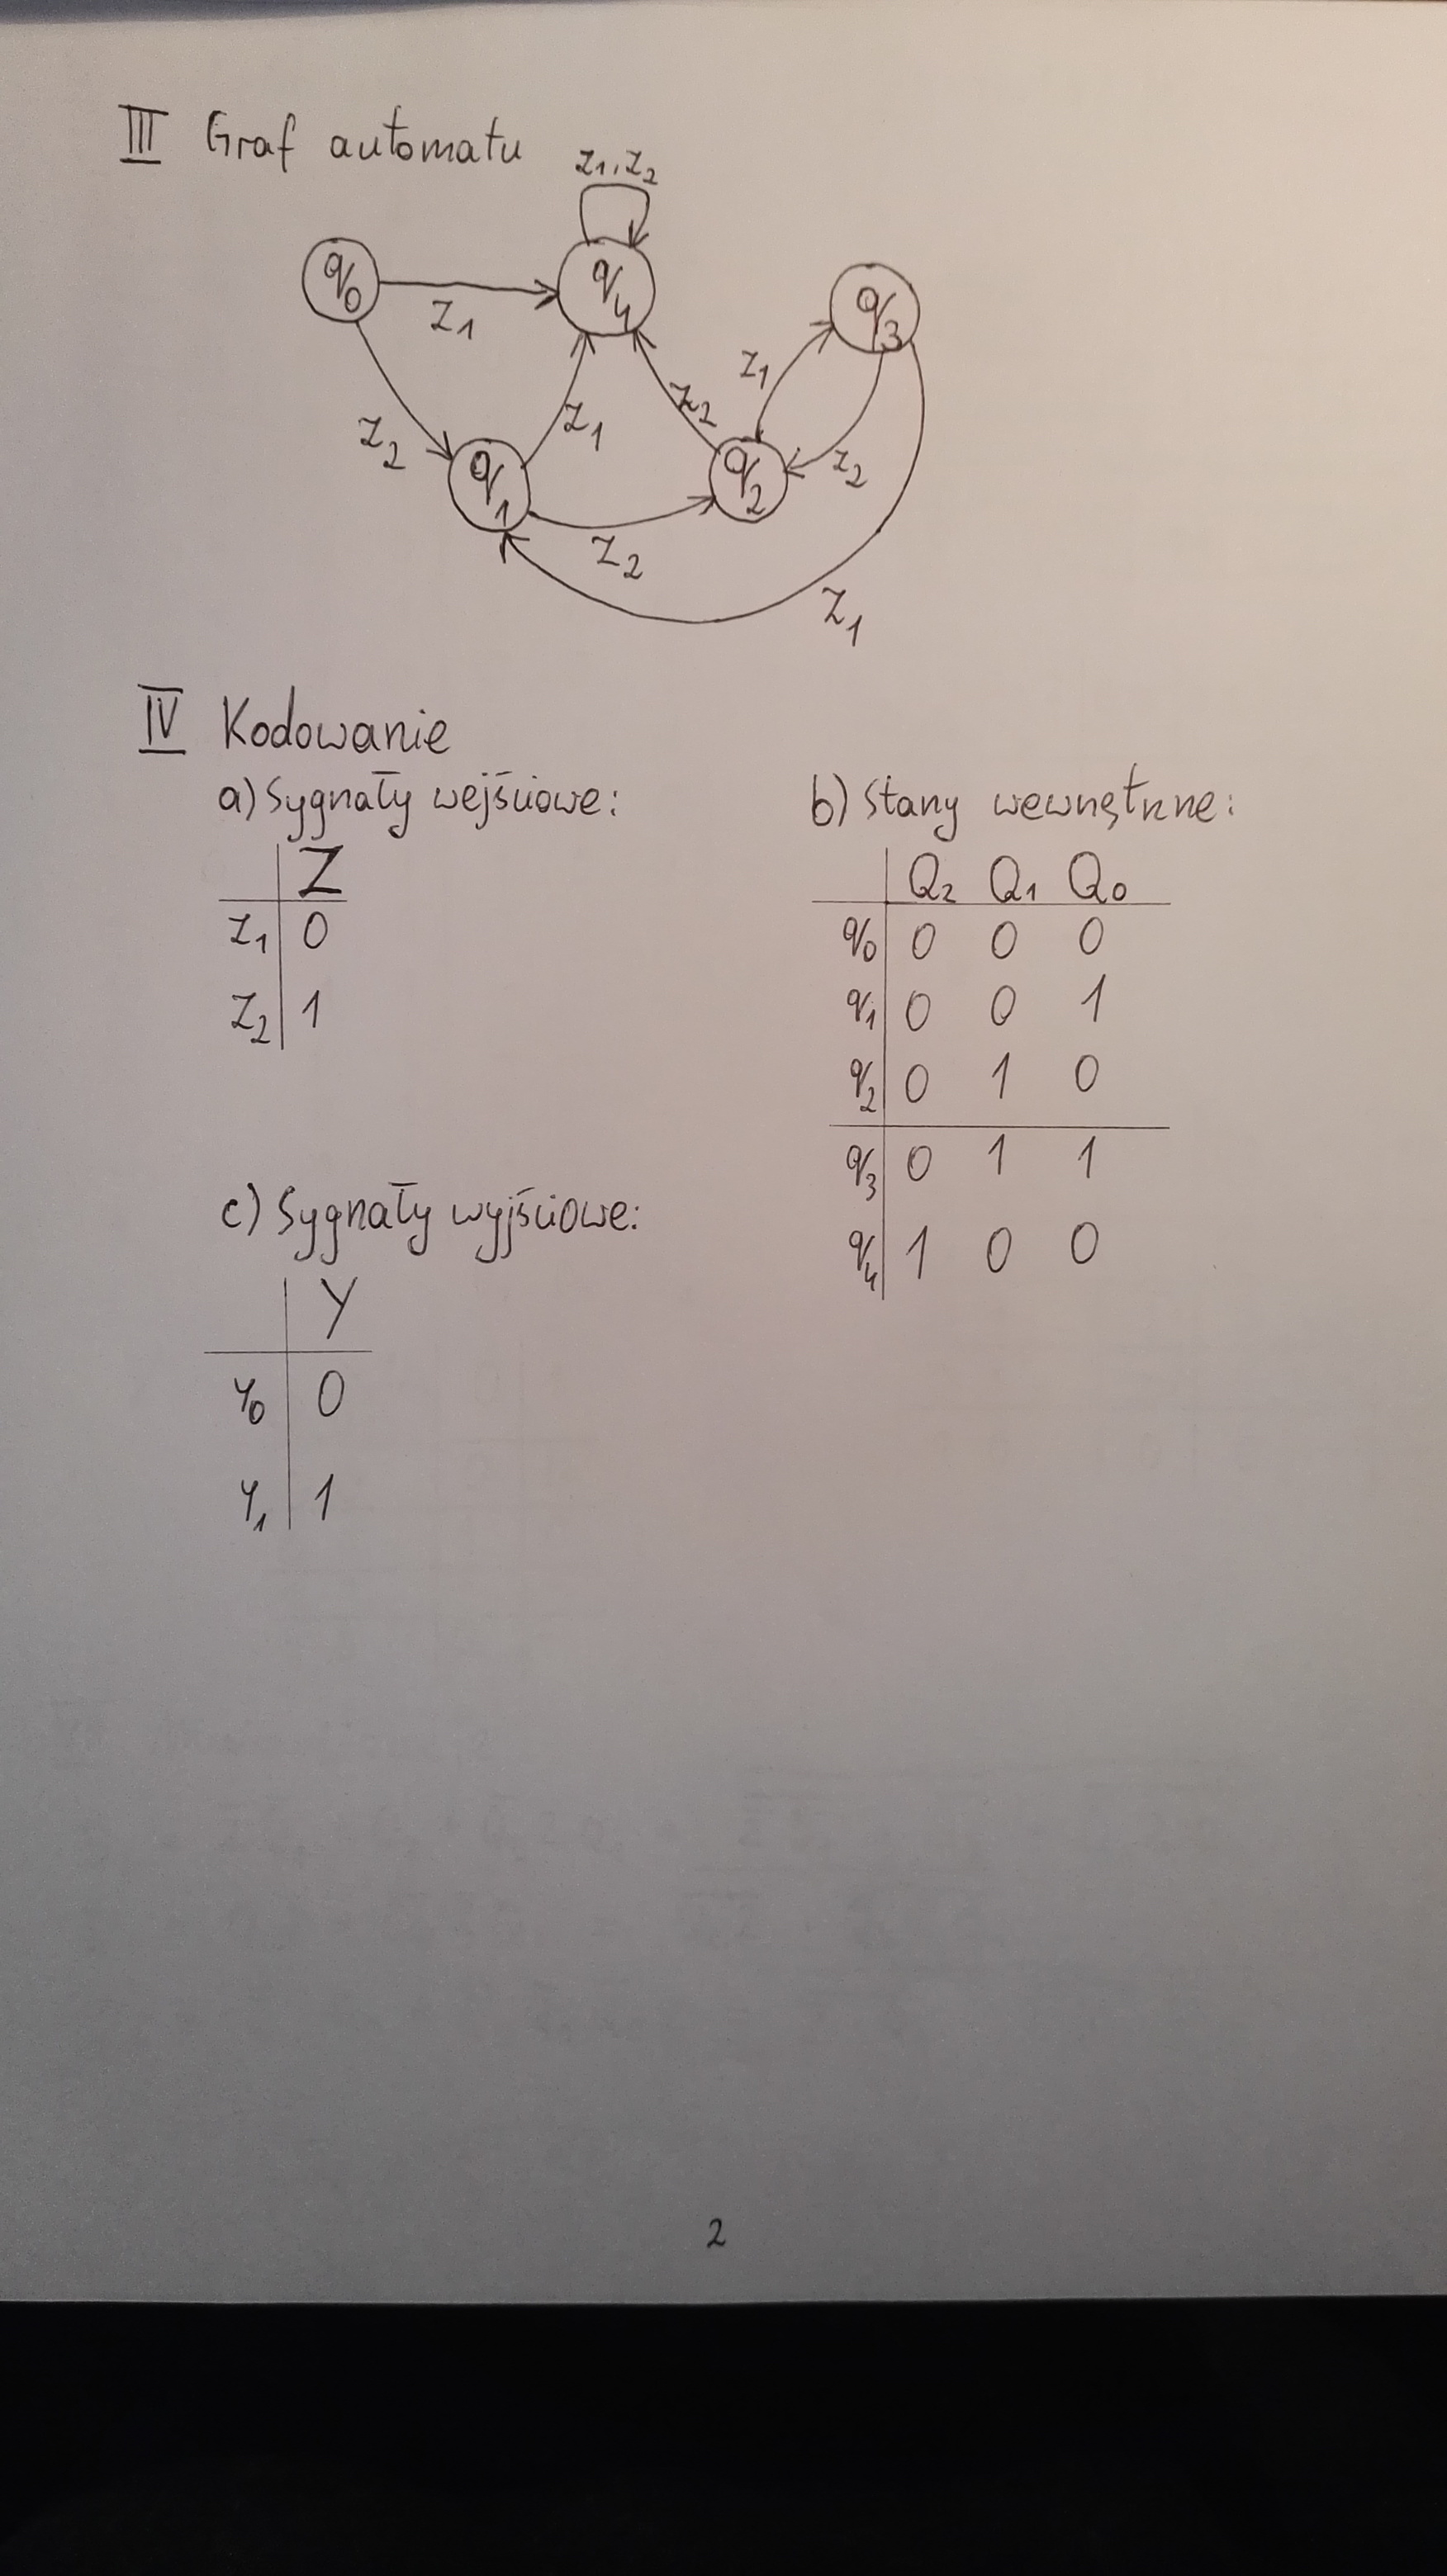 III Graf automatu
z1, z2
q0 q4 q3
z1
z1
z2 z1 z2 z2
q1 q2
z2
z1
IV Kodowanie
a) Sygnały wejściowe:
Z
z1 0
z2 1
b) Stany wewnętrzne:
Q2 Q1 Q0
q0 0 0 0
q1 0 0 1
q2 0 1 0
q3 0 1 1
q4 1 0 0
c) Sygnały wyjściowe:
Y
y0 0
y1 1
2